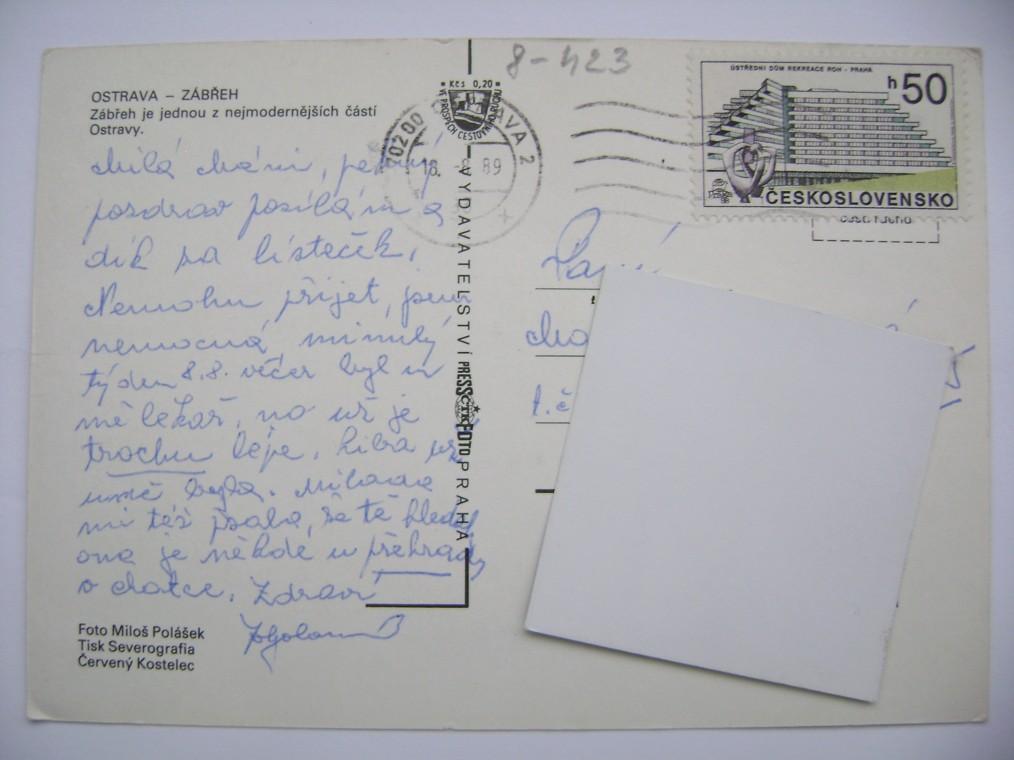 8-423
OSTRAVA – ZÁBŘEH
Zábřeh je jednou z nejmodernějších částí
Ostravy.
Kčs 0,20
VE PROSPĚCH CESTOVNÍHO RUCHU
702 00 VA 2
18. -8 89
ÚSTŘEDNÍ DŮM REKREACE ROH - PRAHA
h 50
ČESKOSLOVENSKO
Milá Máni, pěkný
pozdrav posílám a
dík za lísteček,
Nemohu přijet, jsem
nemocná minulý
týden 8.8. večer byl u
mě lékař, no už je
trochu lépe, Liba už
u mě byla. Milada
mi též psala, že tě hledá
ona je někde u přehrady
v chatce. Zdraví
VYDAVATELSTVÍ PRESSFOTO PRAHA
ČTK
Foto Miloš Polášek
Tisk Severografia
Červený Kostelec